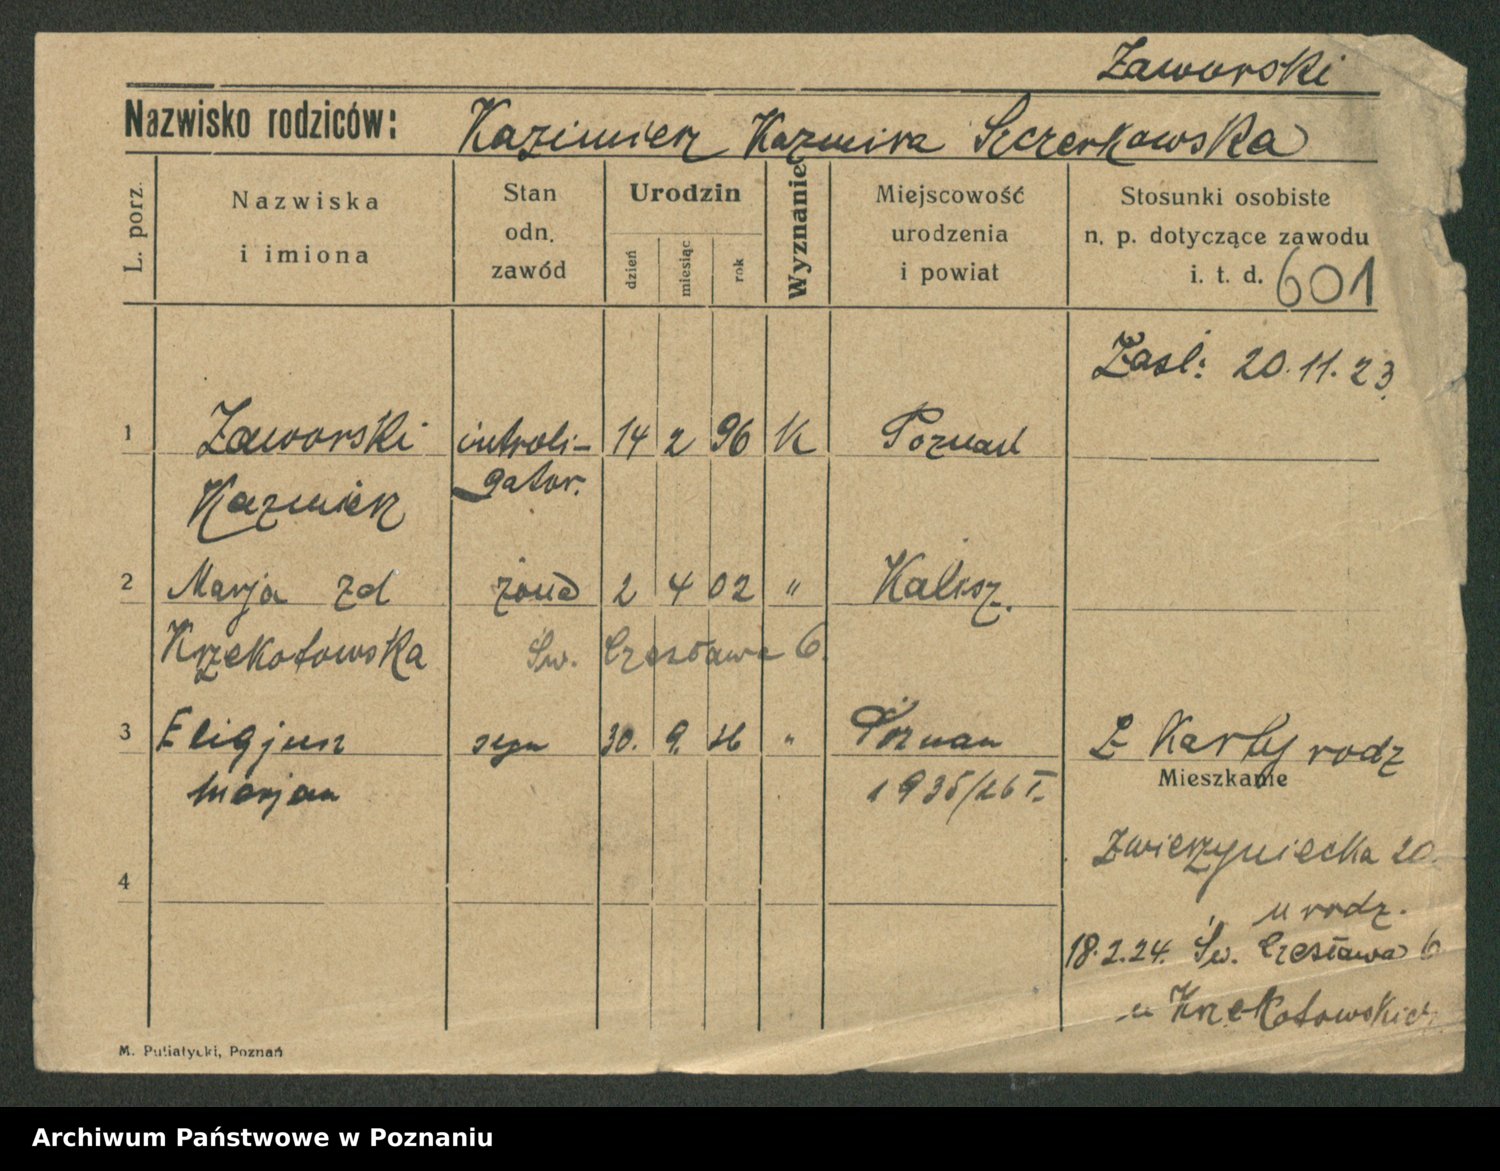 Zaworski
Nazwisko rodziców: Kazimierz Kazmira Szczerkowska
L. porz.
Nazwiska
i imiona
Stan
odn.
zawód
Urodzin
dzień
miesiąc
rok
Wyznanie
Miejscowość
urodzenia
i powiat
Stosunki osobiste
n. p. dotyczące zawodu
i. t. d. 601
Zasl: 20.11.23
1 Zaworski introli- 14 2 96 K Poznań
Kazmierz gator.
2 Marja zd żona 2 4 02 " Kalisz.
Krzekotowska Św. Czesława 6
3 Eligjusz syn 30. 9. " Poznan Z Karty rodz
Marjan 1935/26 I.
Mieszkanie
Zwierzyniecka 20.
u rodz.
18.2.24. Św. Czesława 6
u Krzekotowskich
4
M. Putiatycki, Poznań
Archiwum Państwowe w Poznaniu